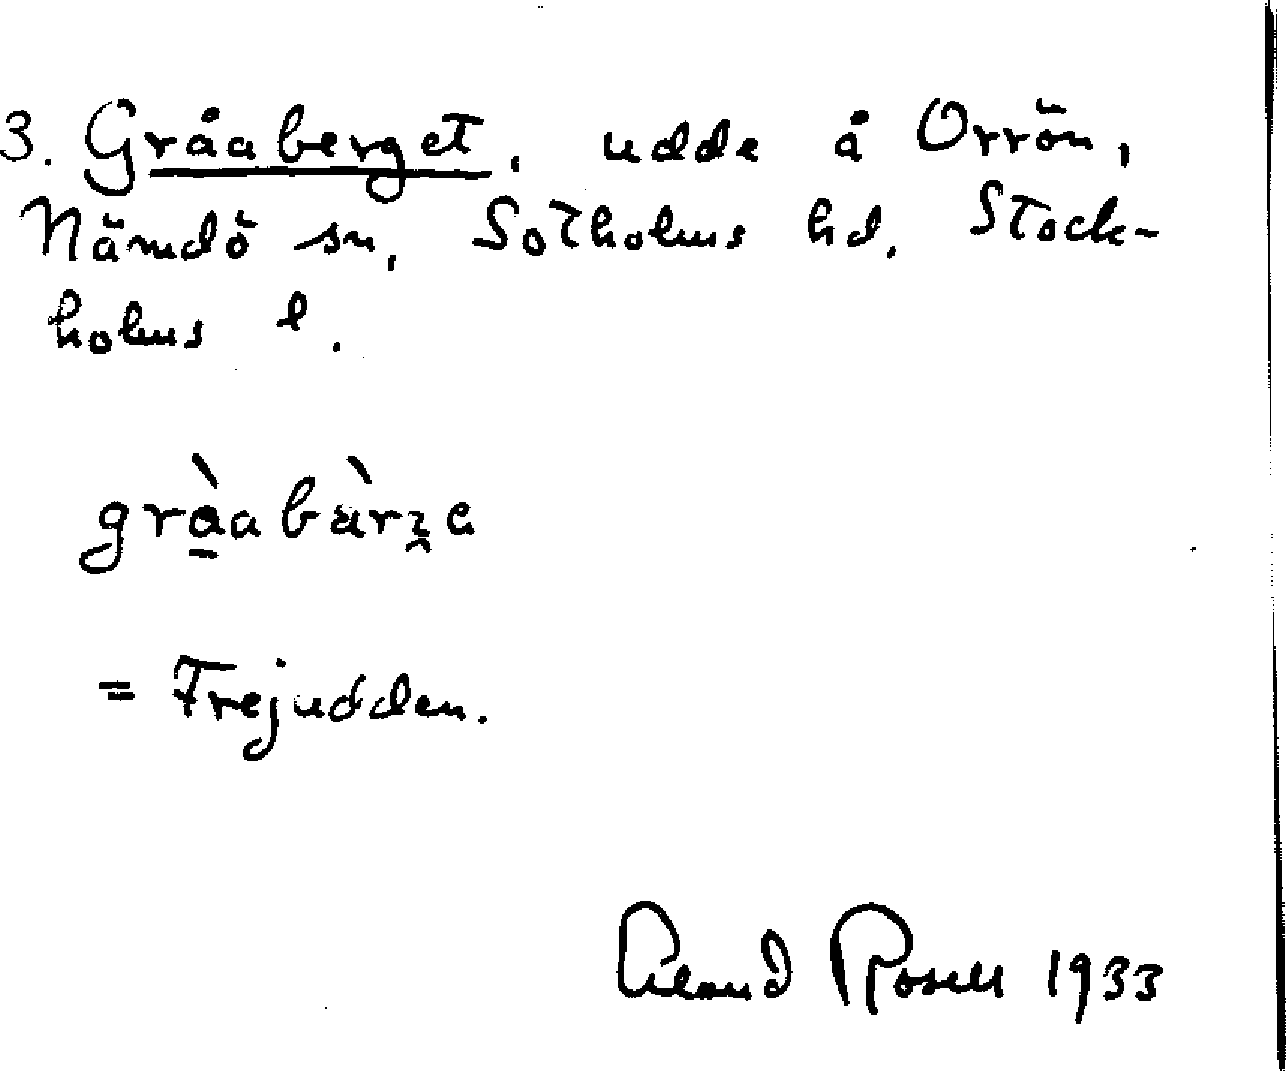 3. Gråaberget, udde å Orrön,
Nämdö sn, Sotholms hd. Stock-
holms l.
gràabàrʒe
= Frejudden.
Rosell 1933